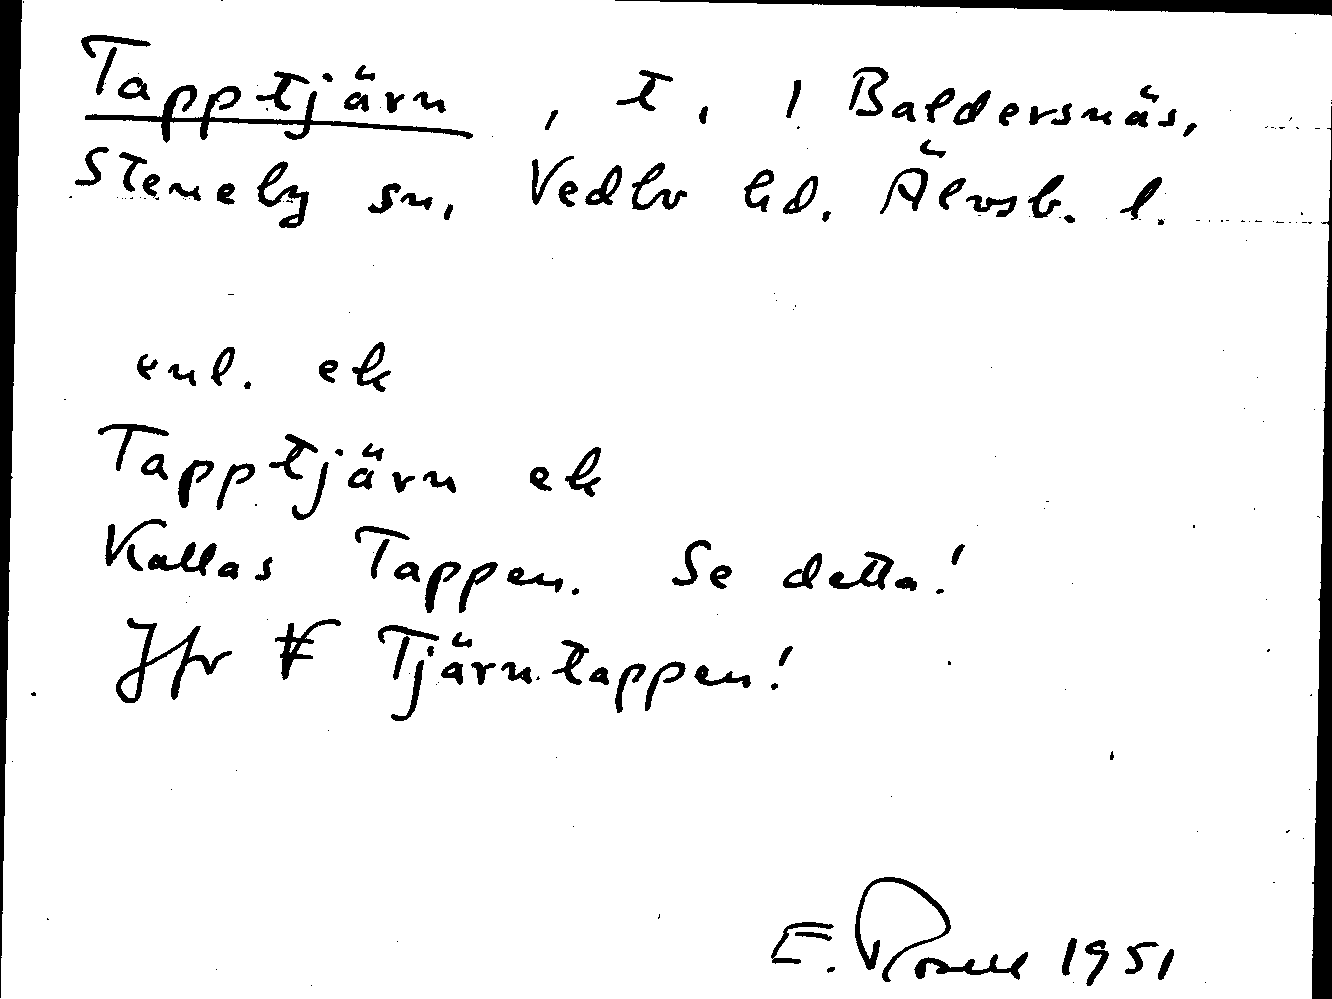 Tapptjärn, t. 1 Baldersnäs,
Steneby sn, Vedbo hd. Älvsb. l.
enl. ek
Tapptjärn ek
Kallas Tappen. Se detta!
Jfr Tjärntappen!
E. Rosell 1951